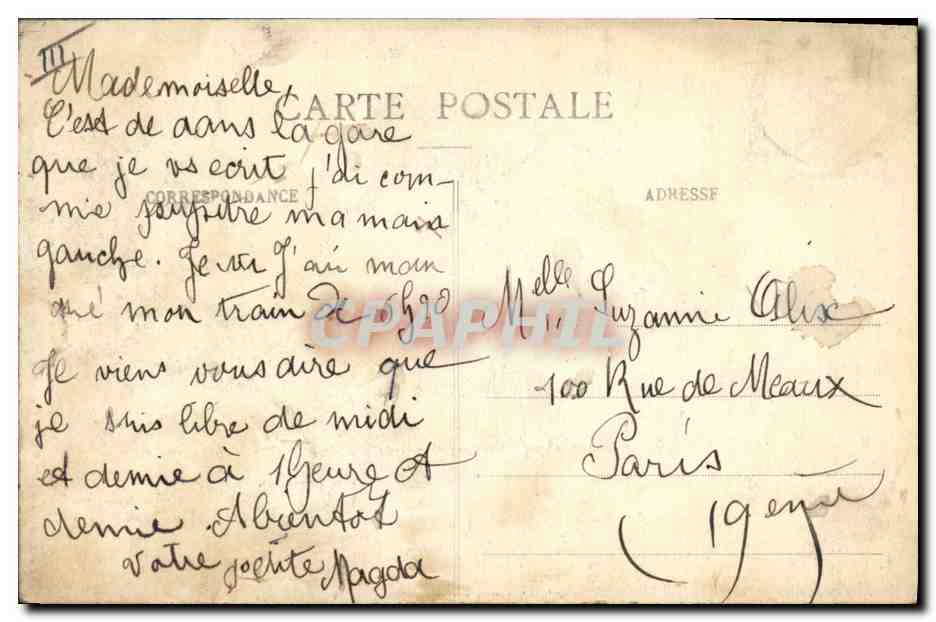 III
Mademoiselle,
CARTE POSTALE
C'est de dans la gare
que je vs ecrit j'ai com-
CORRESPONDANCE
ADRESSE
me ma main
gauche. J'ai man
qué mon train de 6h20
CPAPHIL
Je viens vous dire que
je suis libre de midi
et demie à 1 heure et
demie. A bientot
votre petite Magda
Melle Suzanne Alix
100 Rue de Meaux
Paris
(19eme